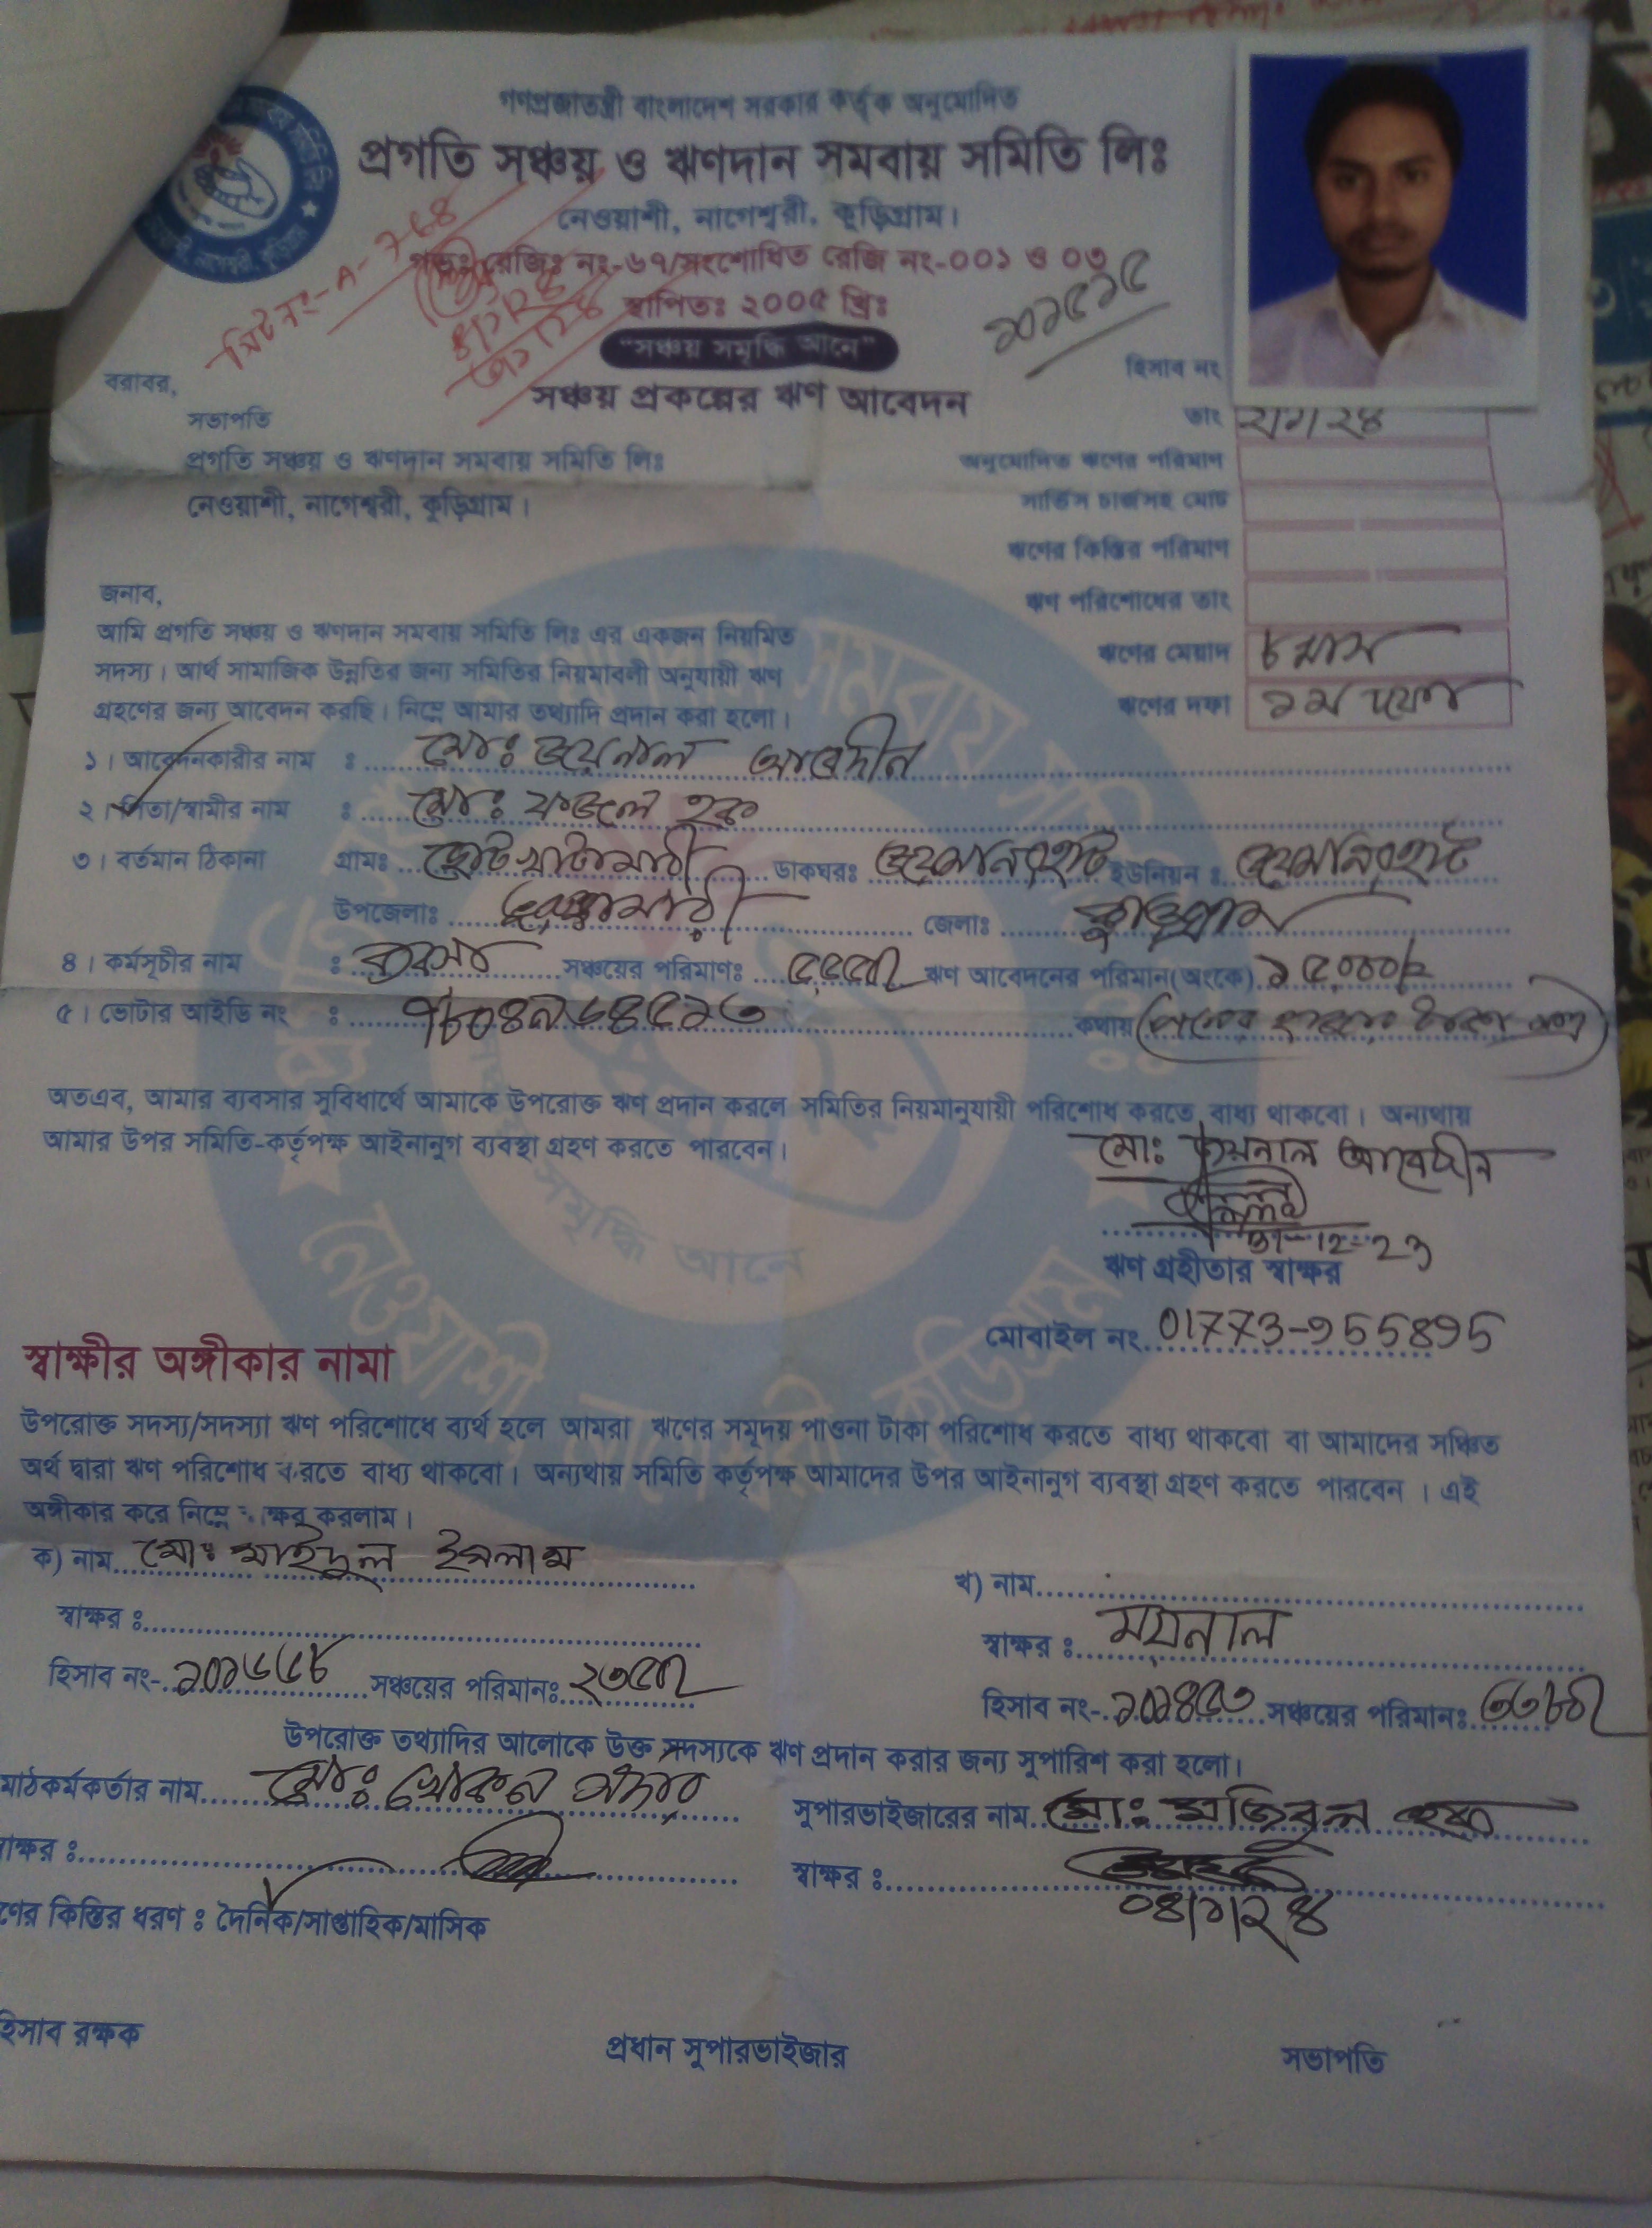 গণপ্রজাতন্ত্রী বাংলাদেশ সরকার কর্তৃক অনুমোদিত
প্রগতি সঞ্চয় ও ঋণদান সমবায় সমিতি লিঃ
নেওয়াশী, নাগেশ্বরী, কুড়িগ্রাম।
রেজিঃ নং-৬৭/সংশোধিত রেজি নং-০০১ ও ০৩
স্থাপিতঃ ২০০৫ খ্রিঃ
"সঞ্চয় সমৃদ্ধি আনে"
সঞ্চয় প্রকল্পের ঋণ আবেদন
১০১৫১৫
হিসাব নং
তাং ২/১/২৪
অনুমোদিত ঋণের পরিমাণ
সার্ভিস চার্জসহ মোট
ঋণের কিস্তির পরিমাণ
ঋণ পরিশোধের তাং
ঋণের মেয়াদ ৮ মাস
ঋণের দফা ১ম দফা
বরাবর,
সভাপতি
প্রগতি সঞ্চয় ও ঋণদান সমবায় সমিতি লিঃ
নেওয়াশী, নাগেশ্বরী, কুড়িগ্রাম।
জনাব,
আমি প্রগতি সঞ্চয় ও ঋণদান সমবায় সমিতি লিঃ এর একজন নিয়মিত
সদস্য। আর্থ সামাজিক উন্নতির জন্য সমিতির নিয়মাবলী অনুযায়ী ঋণ
গ্রহণের জন্য আবেদন করছি। নিম্নে আমার তথ্যাদি প্রদান করা হলো।
১। আবেদনকারীর নাম : মোঃ জয়নাল আবেদীন
২। পিতা/স্বামীর নাম : মোঃ ফজলে হক
৩। বর্তমান ঠিকানা গ্রামঃ ছোট খাটামারী ডাকঘরঃ জয়মনিরহাট ইউনিয়ন : জয়মনিরহাট
উপজেলাঃ ভুরুঙ্গামারী জেলাঃ কুড়িগ্রাম
৪। কর্মসূচীর নাম : ব্যবসা সঞ্চয়ের পরিমাণঃ ৫৫৫০/ ঋণ আবেদনের পরিমান(অংকে) ১৫,০০০/=
৫। ভোটার আইডি নং : ৭৮০৪৯৬৪৫১৩ কথায় (পনের হাজার টাকা মাত্র)
অতএব, আমার ব্যবসার সুবিধার্থে আমাকে উপরোক্ত ঋণ প্রদান করলে সমিতির নিয়মানুযায়ী পরিশোধ করতে বাধ্য থাকবো। অন্যথায়
আমার উপর সমিতি-কর্তৃপক্ষ আইনানুগ ব্যবস্থা গ্রহণ করতে পারবেন।
মোঃ জয়নাল আবেদীন
31-12-23
ঋণ গ্রহীতার স্বাক্ষর
মোবাইল নং 01773-955895
স্বাক্ষীর অঙ্গীকার নামা
উপরোক্ত সদস্য/সদস্যা ঋণ পরিশোধে ব্যর্থ হলে আমরা ঋণের সমূদয় পাওনা টাকা পরিশোধ করতে বাধ্য থাকবো বা আমাদের সঞ্চিত
অর্থ দ্বারা ঋণ পরিশোধ করতে বাধ্য থাকবো। অন্যথায় সমিতি কর্তৃপক্ষ আমাদের উপর আইনানুগ ব্যবস্থা গ্রহণ করতে পারবেন। এই
অঙ্গীকার করে নিম্নে স্বাক্ষর করলাম।
ক) নাম মোঃ মাইদুল ইসলাম
খ) নাম
স্বাক্ষর :
স্বাক্ষর : ময়নাল
হিসাব নং- ১০১৬৫৮ সঞ্চয়ের পরিমানঃ ২৩৫০/
হিসাব নং- ১০১৪৫৩ সঞ্চয়ের পরিমানঃ ৩৩৮০/
উপরোক্ত তথ্যাদির আলোকে উক্ত সদস্যকে ঋণ প্রদান করার জন্য সুপারিশ করা হলো।
মাঠকর্মকর্তার নাম মোঃ খোকন
সুপারভাইজারের নাম মোঃ মজিবুল হক
স্বাক্ষর :
স্বাক্ষর :
০৪/১/২৪
ণের কিস্তির ধরণ : দৈনিক/সাপ্তাহিক/মাসিক
হিসাব রক্ষক
প্রধান সুপারভাইজার
সভাপতি